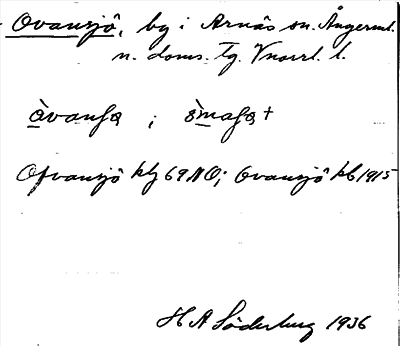 Ovansjö, by i Arnäs sn. Ångerml.
n. doms. Tg. Vnorrl. l.
òvanʃα ; òmaʃα +
Ofvansjö klj 69 NO; Ovansjö kb 1915
H A Söderberg 1936